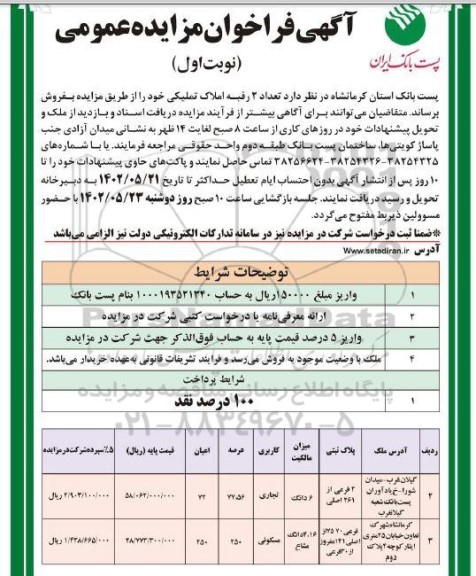 آگهی فراخوان مزایده عمومی
(نوبت اول)
پست بانک ایران
پست بانک استان کرمانشاه در نظر دارد تعداد ۲ رقبه املاک تملیکی خود را از طریق مزایده بفروش
برساند. متقاضیان می‌توانند برای آگاهی بیشتر از فرآیند مزایده دریافت اسناد و بازدید از ملک و
تحویل پیشنهادات خود در روزهای کاری از ساعت ۸ صبح لغایت ۱۴ ظهر به نشانی میدان آزادی جنب
پاساژ کویتی‌ها، ساختمان پست بانک طبقه دوم واحد حقوقی مراجعه فرمایند. یا با شماره‌های
۳۸۲۵۴۳۲۵-۳۸۲۵۴۳۲۶-۳۸۲۵۶۶۲۴ تماس حاصل نمایند و پاکت‌های حاوی پیشنهادات خود را تا
۱۰ روز پس از انتشار آگهی بدون احتساب ایام تعطیل حداکثر تا تاریخ ۱۴۰۲/۰۵/۲۱ به دبیرخانه
تحویل و رسید دریافت نمایند. جلسه بازگشایی ساعت ۱۰ صبح روز دوشنبه ۱۴۰۲/۰۵/۲۳ با حضور
مسوولین ذیربط مفتوح می‌گردد.
*ضمنا ثبت درخواست شرکت در مزایده نیز در سامانه تدارکات الکترونیکی دولت نیز الزامی می‌باشد
آدرس www.setadiran.ir
توضیحات شرایط
۱ واریز مبلغ ۱۵۰۰۰۰۰ ریال به حساب ۱۰۰۰۱۹۳۵۲۱۳۴۰ بنام پست بانک
۲ ارائه معرفی‌نامه یا درخواست کتبی شرکت در مزایده
۳ واریز ۵ درصد قیمت پایه به حساب فوق‌الذکر جهت شرکت در مزایده
۴ ملک با وضعیت موجود به فروش می‌رسد و فرایند تشریفات قانونی به عهده خریدار می‌باشد.
شرایط پرداخت
۱ ۱۰۰ درصد نقد
پایگاه اطلاع رسانی مناقصه و مزایده
۰۲۱-۸۸۳۴۹۶۷۰-۵
ردیف آدرس ملک پلاک ثبتی میزان مالکیت کاربری عرصه اعیان قیمت پایه (ریال) ۵٪ سپرده شرکت در مزایده
۲ گیلان غرب - میدان شورا - خ یادآوران پست بانک شعبه گیلانغرب ۲ فرعی از ۲۶۱ اصلی ۶ دانگ تجاری ۷۷.۵۶ ۷۲ ۵۸/۰۶۲/۰۰۰/۰۰۰ ۲/۹۰۳/۱۰۰/۰۰۰ ریال
۳ کرمانشاه شهرک تعاون خیابان ۲۵ متری ایثار کوچه ۲ پلاک دوم مسکونی ۲۵۰ ۲۵۰ ۲۸/۷۷۳/۳۰۰/۰۰۰ ۱/۴۳۸/۶۶۵/۰۰۰ ریال